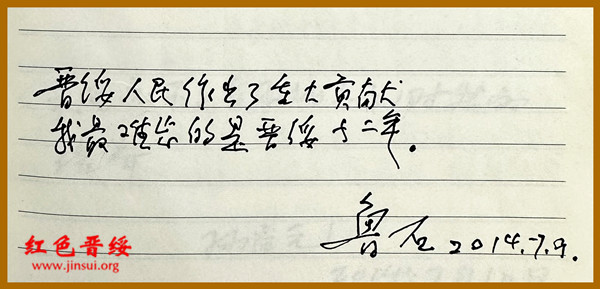 晋绥人民作出了重大贡献
我最难忘的是晋绥十二年。
鲁石 2014.7.9.
红色晋绥
www.jinsui.org